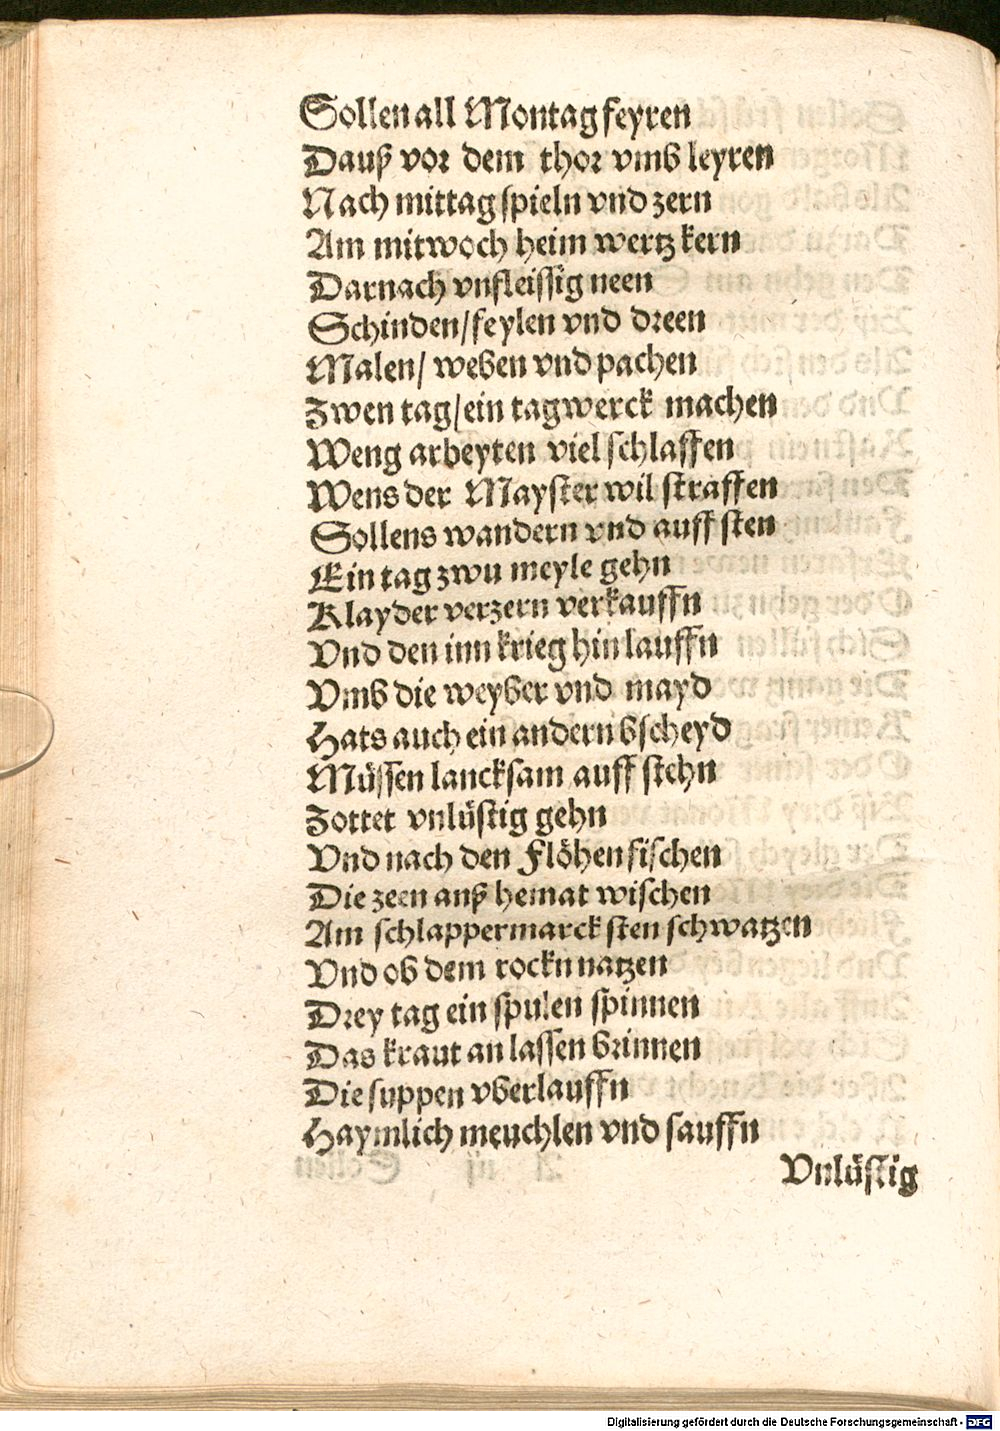 Sollen all Montag feyren
Dauß vor dem thor vmb leyren
Nach mittag spieln vnd zern
Am mitwoch heim wertz kern
Darnach vnfleissig neen
Schinden/feylen vnd dreen
Malen/ weben vnd pachen
Zwen tag/ein tagwerck machen
Weng arbeyten viel schlaffen
Wens der Mayster wil straffen
Sollens wandern vnd auff sten
Ein tag zwu meyle gehn
Klayder verzern verkauffn
Vnd den inn krieg hin lauffn
Vmb die weyber vnd mayd
Hats auch ein andern bscheyd
Müssen lancksam auff stehn
Zottet vnlüstig gehn
Vnd nach den Flöhen fischen
Die zeen anß hemat wischen
Am schlappermarck sten schwatzen
Vnd ob dem rockn natzen
Drey tag ein spulen spinnen
Das kraut an lassen brinnen
Die suppen vberlauffn
Haymlich meuchlen vnd sauffn
Vnlüstig
Digitalisierung gefördert durch die Deutsche Forschungsgemeinschaft - DFG